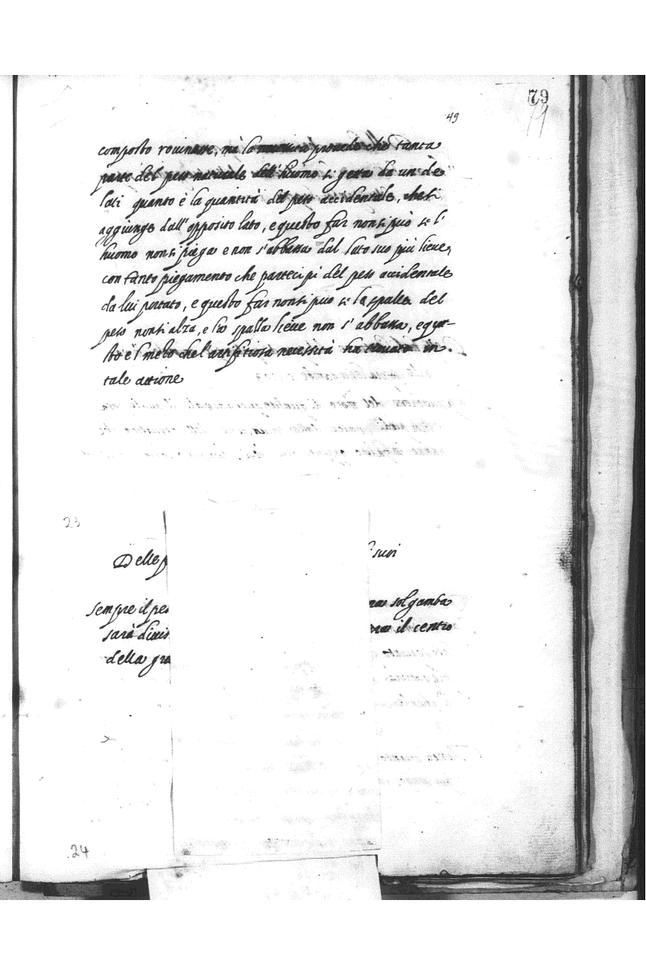 79
49
composto rovinare, mà la natura provede che tanta
parte del peso naturale dell'huomo si geta da un de
lati quanto è la quantità del peso accidentale, che si
aggiunge dall'opposito lato, e questo far non si può se l'
huomo non si piega e non s'abbassa dal lato suo più lieve,
con tanto piegamento che partecipi del peso accidentale
da lui portato, e questo far non si puo se la spalla del
peso non si alza, e la spalla lieve non s'abbassa, e que-
sto è'l mezo che l'artifitiosa necessità ha trovato in
tale attione
23
Delle suoi
sempre il pe sol gamba
sarà divis il centro
della gra
24